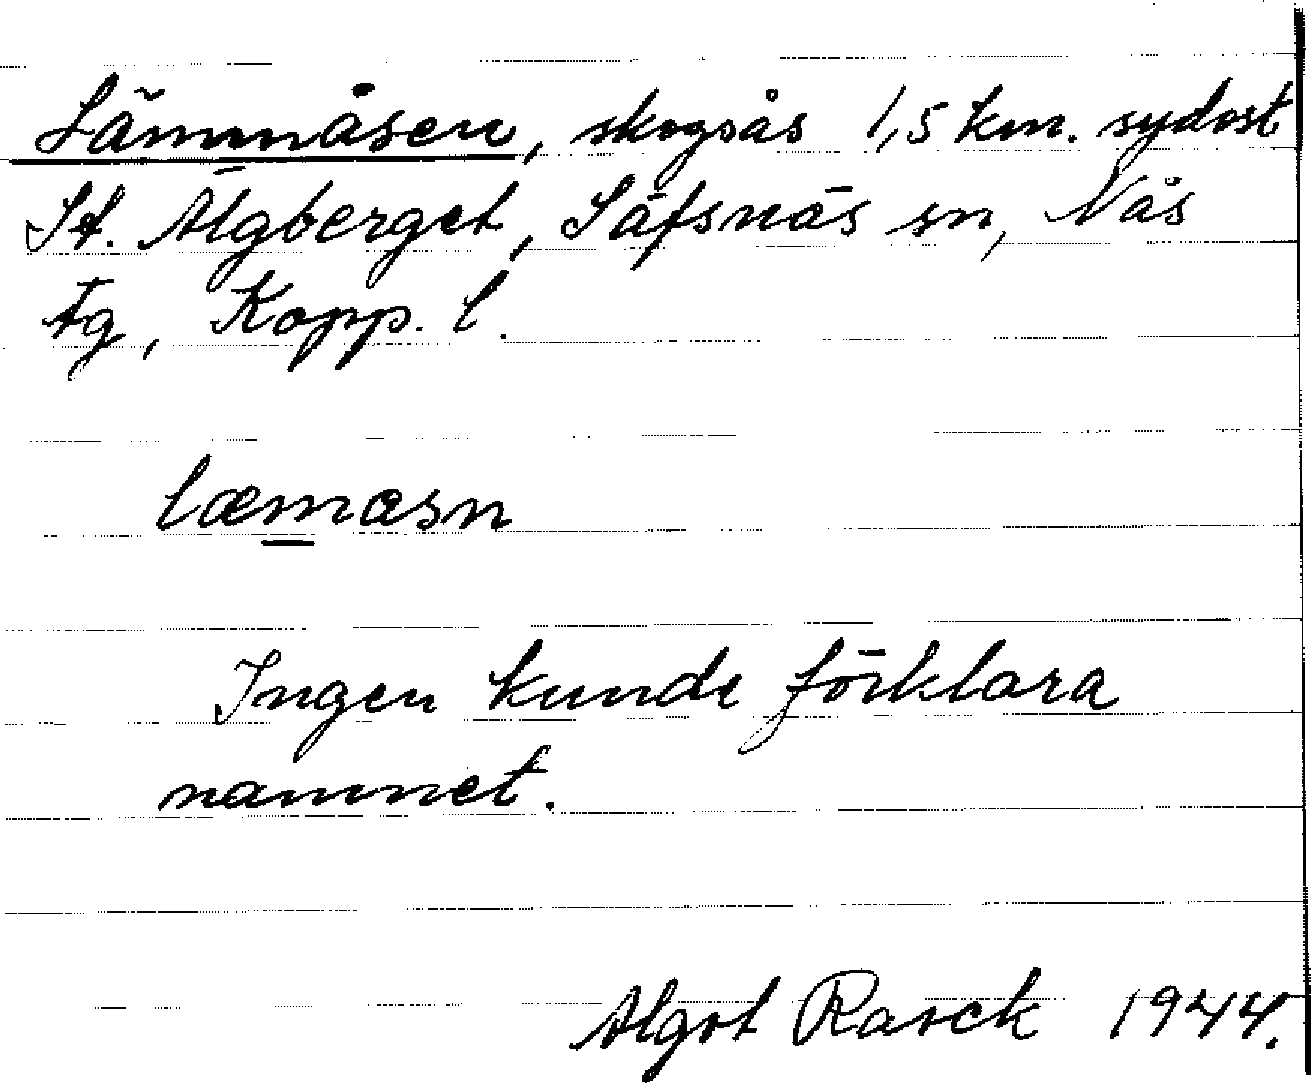 Lämmåsen, skogsås 1,5 km. sydost
St. Älgberget, Säfsnäs sn, Nås
tg, Kopp. l.
læmåsn
Ingen kunde förklara
namnet.
Algot Rasck 1944.